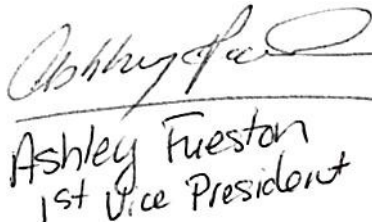 Ashley
Ashley Fueston
1st Vice President